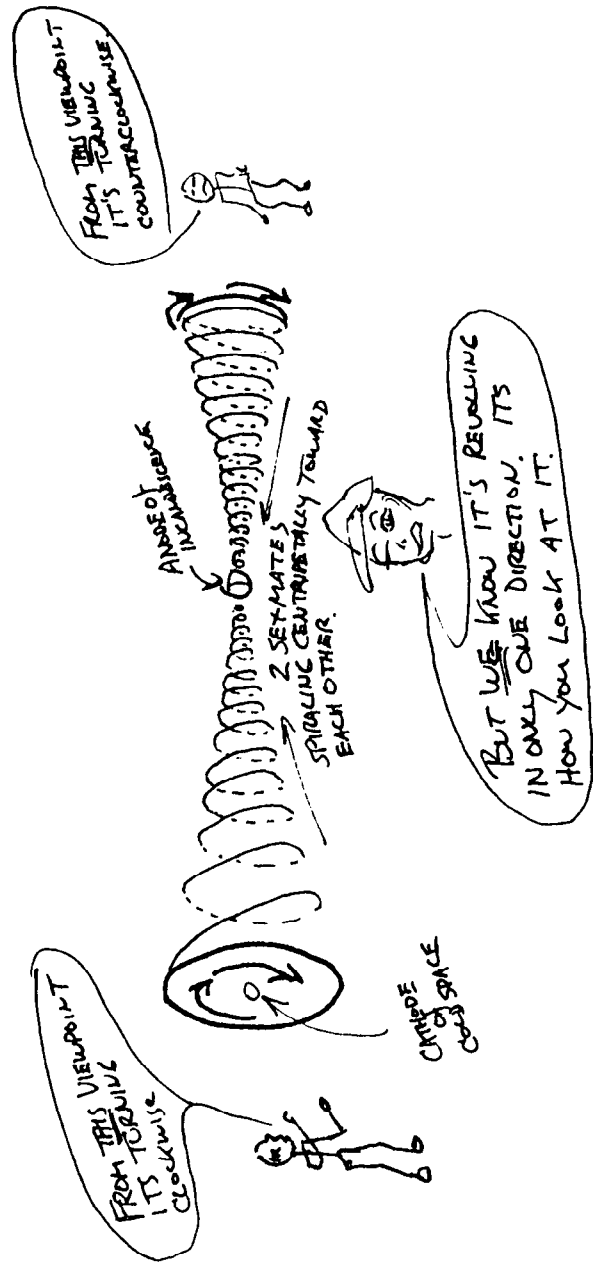 FROM THIS VIEWPOINT
ITS TURNING
CLOCKWISE
CATHODE
OF
COLD SPACE
ANODE OF
INCANDESCENCE
2 SEX MATES
SPIRALING CENTRIPETALLY TOWARD
EACH OTHER.
FROM THIS VIEWPOINT
IT'S TURNING
COUNTERCLOCKWISE.
BUT WE KNOW IT'S REVOLVING
IN ONLY ONE DIRECTION. ITS
HOW YOU LOOK AT IT.